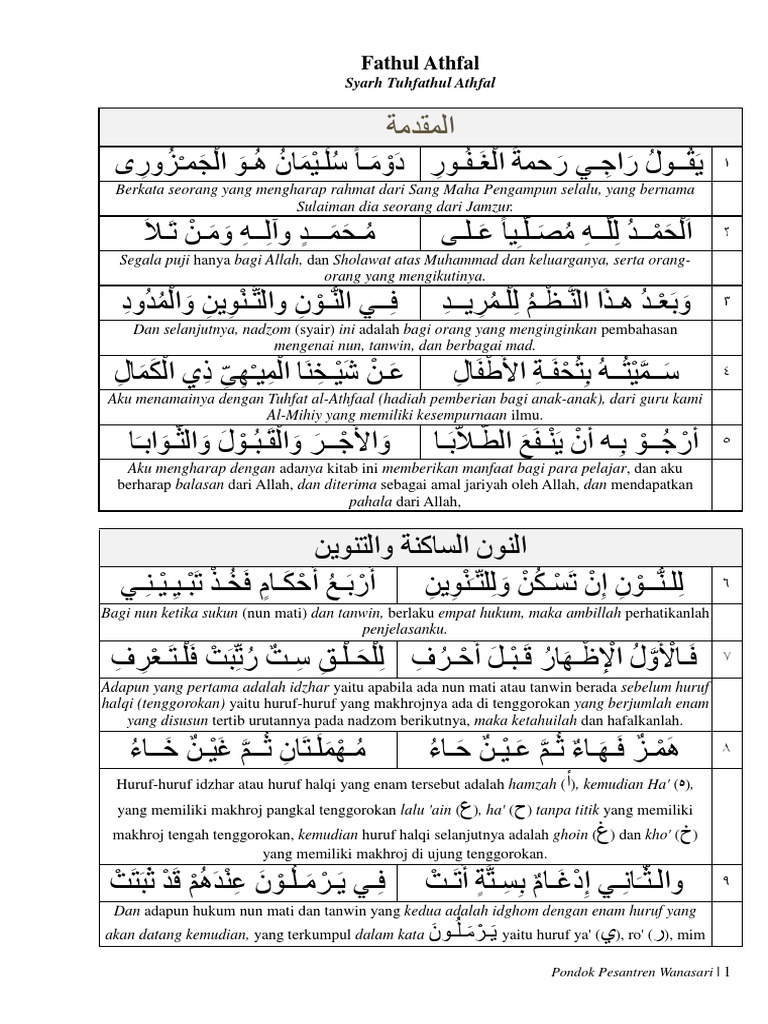 Fathul Athfal
Syarh Tuhfathul Athfal
المقدمة
يَقُـولُ رَاجِـي رَحمةَ الْغَـفُـورِ دَوْمَـاً سُلَيْمَانُ هُـوَ الْجَمْـزُورِى ١
Berkata seorang yang mengharap rahmat dari Sang Maha Pengampun selalu, yang bernama
Sulaiman dia seorang dari Jamzur.
اَلْحَمْـدُ لِلَّـهِ مُصَـلِّـياً عَـلَـى مُـحَمَـدٍ وآلِـهِ وَمَـنْ تَـلاَ ٢
Segala puji hanya bagi Allah, dan Sholawat atas Muhammad dan keluarganya, serta orang-
orang yang mengikutinya.
وَبَعْـدُ هـذَا النَّـظْـمُ لِلْـمُرِيـدِ فِـي النُّـوْنِ والتَّنْـوِينِ وَالْمُدُودِ ٣
Dan selanjutnya, nadzom (syair) ini adalah bagi orang yang menginginkan pembahasan
mengenai nun, tanwin, dan berbagai mad.
سَـمَّيْتُـهُ بِتُحْـفَـةِ الأَطْفَـالِ عَـنْ شَيْـخِنَـا الْمِيـهِىِّ ذِي الْكَمَـالِ ٤
Aku menamainya dengan Tuhfat al-Athfaal (hadiah pemberian bagi anak-anak), dari guru kami
Al-Mihiy yang memiliki kesempurnaan ilmu.
أَرْجُـوْ بِـه أَنْ يَنْـفَعَ الطُّـلاَّبَـا وَالأَجْـرَ وَالْقَـبُـوْلَ وَالثَّـوَابَـا ٥
Aku mengharap dengan adanya kitab ini memberikan manfaat bagi para pelajar, dan aku
berharap balasan dari Allah, dan diterima sebagai amal jariyah oleh Allah, dan mendapatkan
pahala dari Allah,
النون الساكنة والتنوين
لِلنُّـوْنِ إِنْ تَسْـكُنْ وَلِلتَّـنْوِينِ أَرْبَـعُ أَحْكَـامٍ فَخُـذْ تَبْـيِيْـنِـي ٦
Bagi nun ketika sukun (nun mati) dan tanwin, berlaku empat hukum, maka ambillah perhatikanlah
penjelasanku.
فَـالْأَوَّلُ الْإِظْـهَـارُ قَـبْـلَ أَحْـرُفِ لِلْحَـلْـقِ سِـتٌ رُتِّبَـتْ فَلْتَـعْـرِفِ ٧
Adapun yang pertama adalah idzhar yaitu apabila ada nun mati atau tanwin berada sebelum huruf
halqi (tenggorokan) yaitu huruf-huruf yang makhrojnya ada di tenggorokan yang berjumlah enam
yang disusun tertib urutannya pada nadzom berikutnya, maka ketahuilah dan hafalkanlah.
هَمْـزٌ فَـهَـاءٌ ثُـمَّ عَـيْـنٌ حَـاءُ مُـهْمَلَـتَانِ ثُـمَّ غَيْـنٌ خَـاءُ ٨
Huruf-huruf idzhar atau huruf halqi yang enam tersebut adalah hamzah (أ), kemudian Ha' (ه),
yang memiliki makhroj pangkal tenggorokan lalu 'ain (ع), ha' (ح) tanpa titik yang memiliki
makhroj tengah tenggorokan, kemudian huruf halqi selanjutnya adalah ghoin (غ) dan kho' (خ)
yang memiliki makhroj di ujung tenggorokan.
والـثَّـانِـي إِدْغَـامٌ بِسِـتَّةٍ أَتَـتْ فِـي يَـرْمَـلُـوْنَ عِنْدَهُمْ قَدْ ثَبَتَتْ ٩
Dan adapun hukum nun mati dan tanwin yang kedua adalah idghom dengan enam huruf yang
akan datang kemudian, yang terkumpul dalam kata يَـرْمَـلُـونَ yaitu huruf ya' (ي), ro' (ر), mim
Pondok Pesantren Wanasari | 1